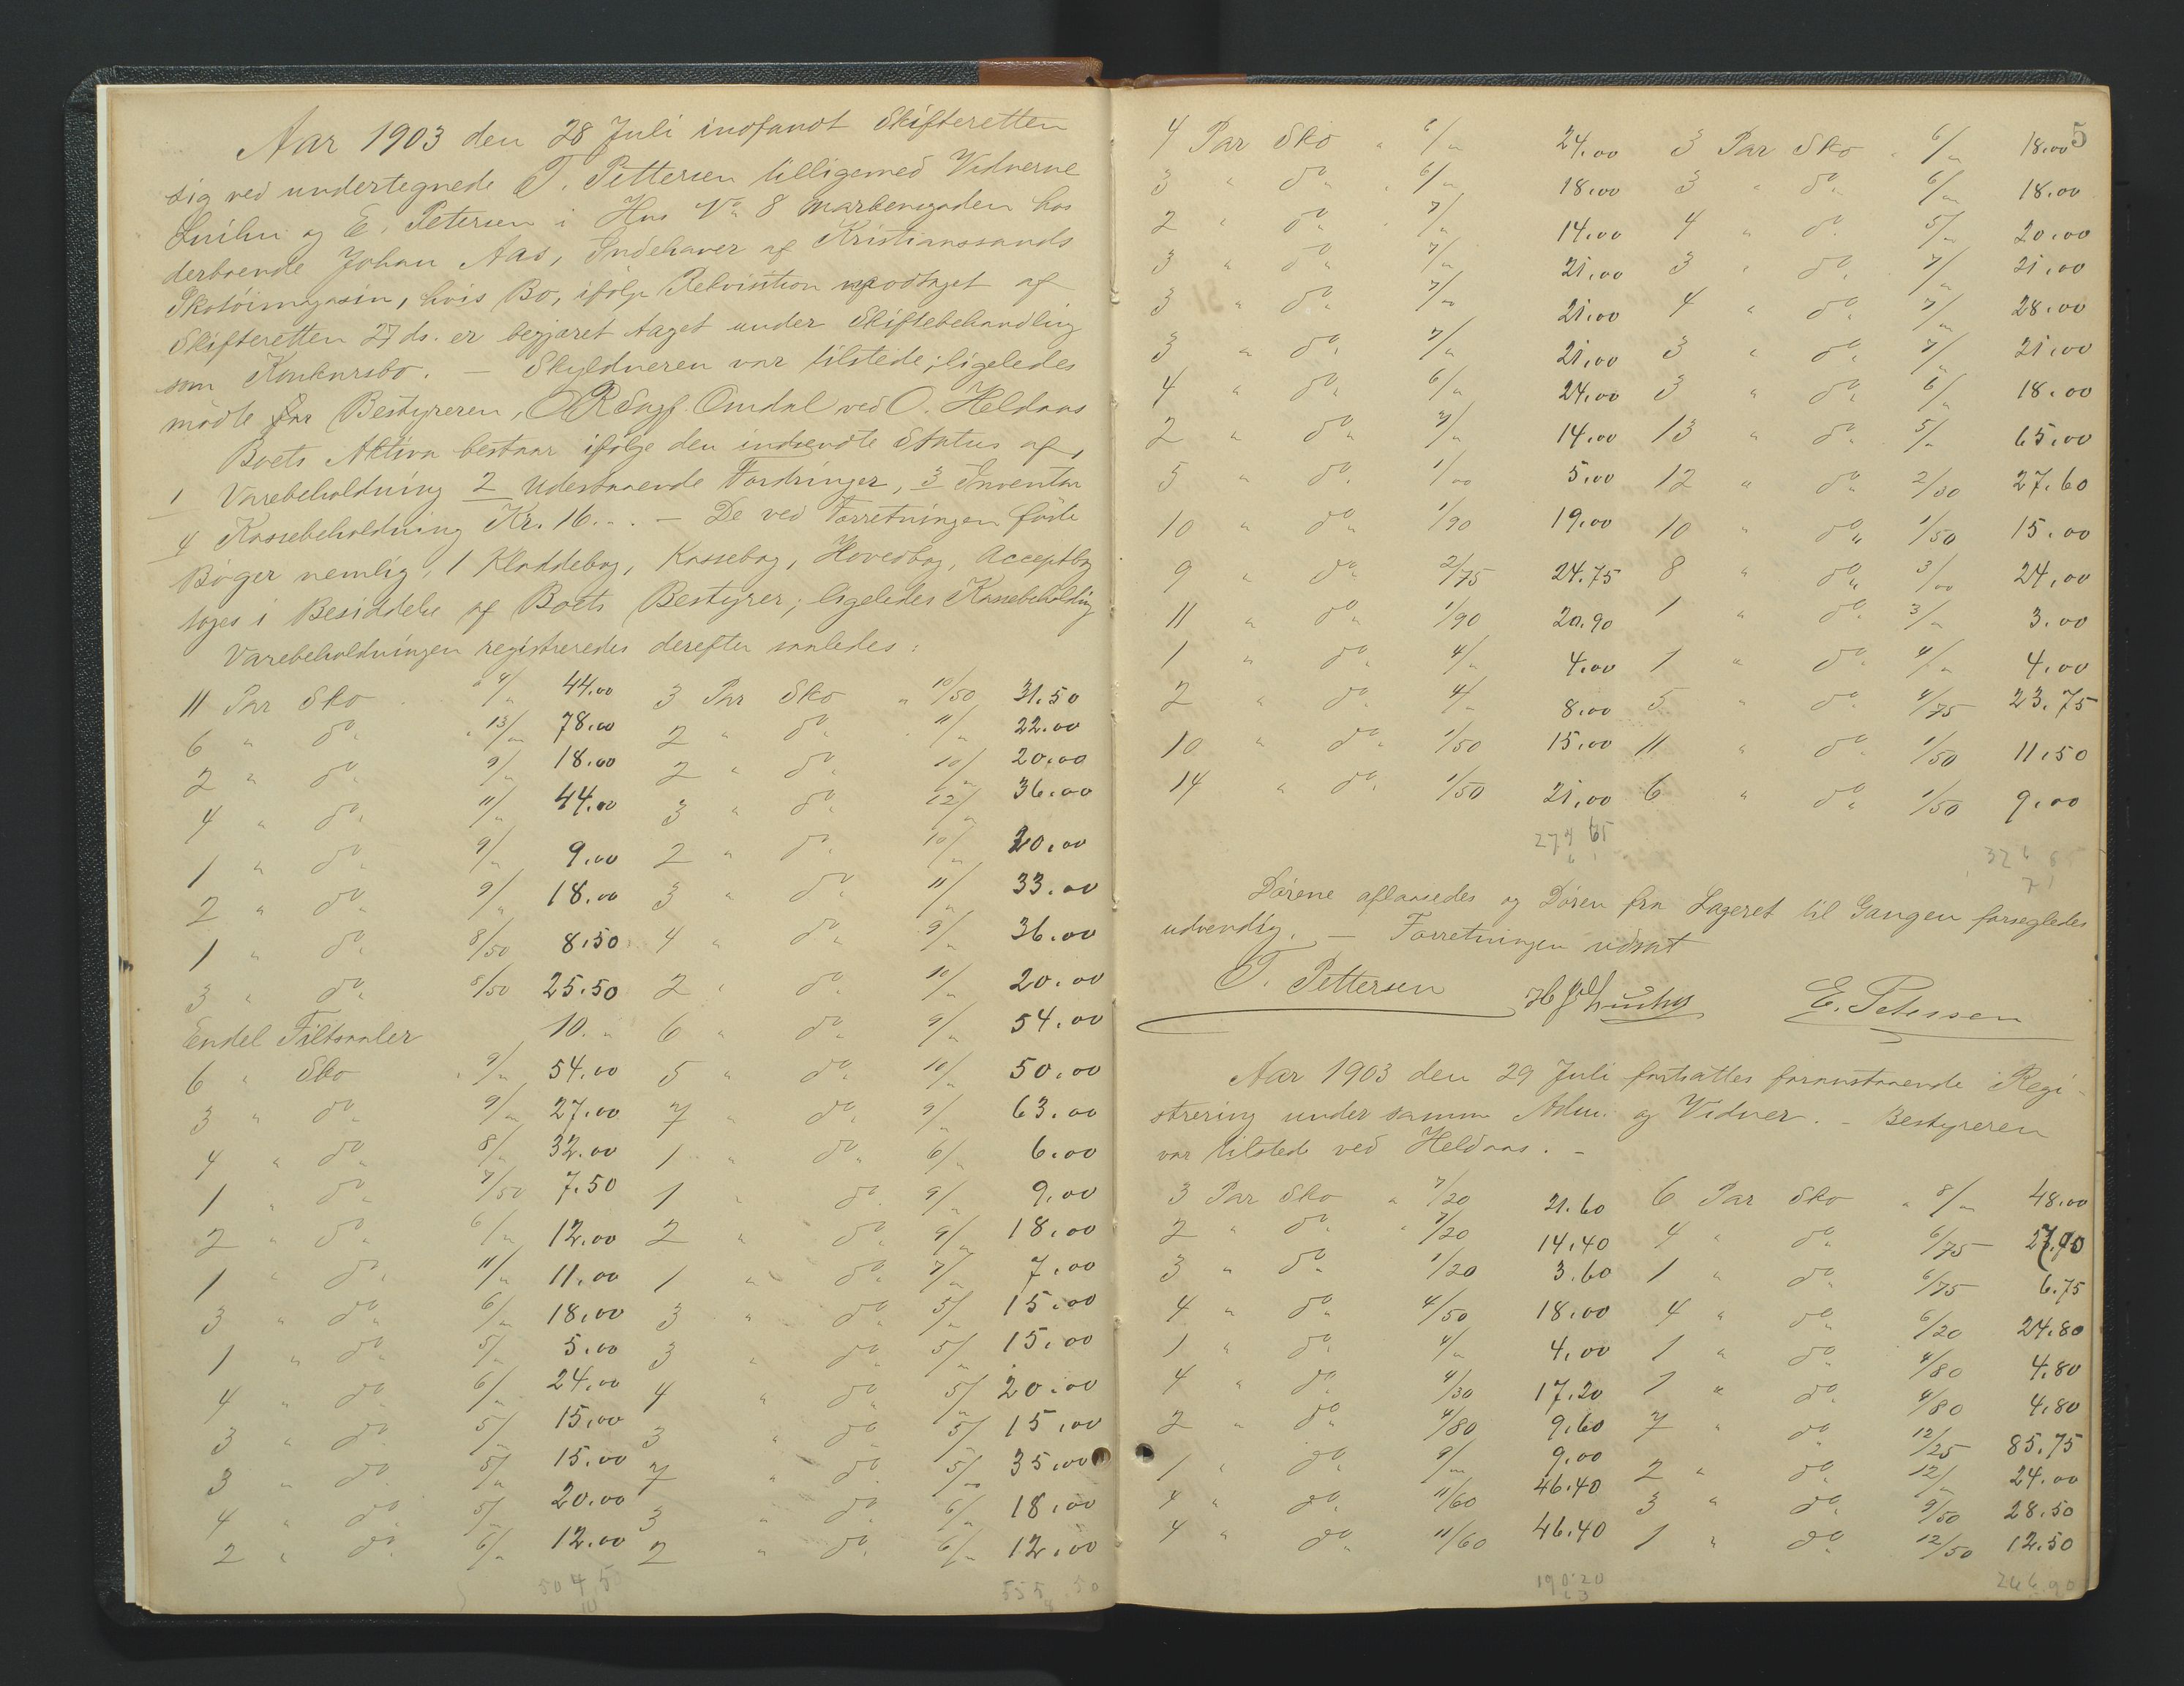 Aar 1903 den 28 Juli indfandt Skifteretten
sig ved undertegnede T. Pettersen tilligemed Vidnerne
og E. Petersen i Hus No 8 Markensgaden hos
derboende Johan Aas, Indehaver af Kristianssands
Skotöimagasin, hvis Bo, ifölge Rekvisition modtaget af
Skifteretten 27 ds. er begjæret taget under Skiftebehandling
som Konkursbo. — Skyldneren var tilstede; ligeledes
mödte for Bestyreren, ORSagf. Omdal ved O. Heldaas
Boets Aktiva bestaar ifölge den indsendte Status af,
1 Varebeholdning 2 Udestaaende Fordringer, 3 Inventar
4 Kassebeholdning Kr. 16.. — De ved Forretningen förte
Böger nemlig, 1 Kladdebog, Kassebog, Hovedbog, Acceptbog
toges i Besiddelse af Boets Bestyrer; ligeledes Kassebeholdning
Varebeholdningen registreredes derefter saaledes:
11 Par Sko a 4/" 44.00 3 Par Sko a 10/50 31.50
6 " do " 13/" 78.00 2 " do " 11/" 22.00
2 " do " 9/" 18.00 2 " do " 10/" 20.00
4 " do " 11/" 44.00 3 " do " 12/" 36.00
1 " do " 9/" 9.00 2 " do " 10/" 20.00
2 " do " 9/" 18.00 3 " do " 11/" 33.00
1 " do " 8/50 8.50 4 " do " 9/" 36.00
3 " do " 8/50 25.50 2 " do " 10/" 20.00
Endel Filtsaaler 10. " 6 " do " 9/" 54.00
6 " Sko " 9/" 54.00 5 " do " 10/" 50.00
3 " do " 9/" 27.00 7 " do " 9/" 63.00
4 " do " 8/" 32.00 1 " do " 6/" 6.00
1 " do " 7/50 7.50 1 " do " 9/" 9.00
2 " do " 6/" 12.00 2 " do " 9/" 18.00
1 " do " 11/" 11.00 1 " do " 7/" 7.00
3 " do " 6/" 18.00 3 " do " 5/" 15.00
1 " do " 5/" 5.00 3 " do " 5/" 15.00
4 " do " 6/" 24.00 4 " do " 5/" 20.00
3 " do " 5/" 15.00 3 " do " 5/" 15.00
3 " do " 5/" 15.00 7 " do " 5/" 35.00
4 " do " 5/" 20.00 3 " do " 6/" 18.00
2 " do " 6/" 12.00 2 " do " 6/" 12.00
504 50 555 50
5
4 Par Sko " 6/" 24.00 3 Par Sko " 6/" 18.00
3 " do " 6/" 18.00 3 " do " 6/" 18.00
2 " do " 7/" 14.00 4 " do " 5/" 20.00
3 " do " 7/" 21.00 3 " do " 7/" 21.00
3 " do " 7/" 21.00 4 " do " 7/" 28.00
3 " do " 7/" 21.00 3 " do " 7/" 21.00
4 " do " 6/" 24.00 3 " do " 6/" 18.00
2 " do " 7/" 14.00 13 " do " 5/" 65.00
5 " do " 1/00 5.00 12 " do " 2/30 27.60
10 " do " 1/90 19.00 10 " do " 1/50 15.00
9 " do " 2/75 24.75 8 " do " 3/00 24.00
11 " do " 1/90 20.90 1 " do " 3/" 3.00
1 " do " 4/" 4.00 1 " do " 4/" 4.00
2 " do " 4/" 8.00 5 " do " 4/75 23.75
10 " do " 1/50 15.00 11 " do " 1/50 11.50
14 " do " 1/50 21.00 6 " do " 1/50 9.00
Dörene aflaasedes og Dören fra Lageret til Gangen forsegledes
udvendig. — Forretningen udsat
T. Pettersen E. Petersen
Aar 1903 den 29 Juli fortsattes foranstaaende Regi-
strering under samme Adm. og Vidner. — Bestyreren
var tilstede ved Heldaas. —
3 Par Sko a 7/20 21.60 6 Par Sko a 8/" 48.00
2 " do " 7/20 14.40 4 " do " 6/75 27.00
3 " do " 1/20 3.60 1 " do " 6/75 6.75
4 " do " 4/50 18.00 4 " do " 6/20 24.80
1 " do " 4/" 4.00 1 " do " 4/80 4.80
4 " do " 4/30 17.20 1 " do " 4/80 4.80
2 " do " 4/80 9.60 7 " do " 12/25 85.75
1 " do " 9/" 9.00 2 " do " 12/" 24.00
4 " do " 11/60 46.40 3 " do " 9/50 28.50
4 " do " 11/60 46.40 1 " do " 12/50 12.50
190.20 266.90